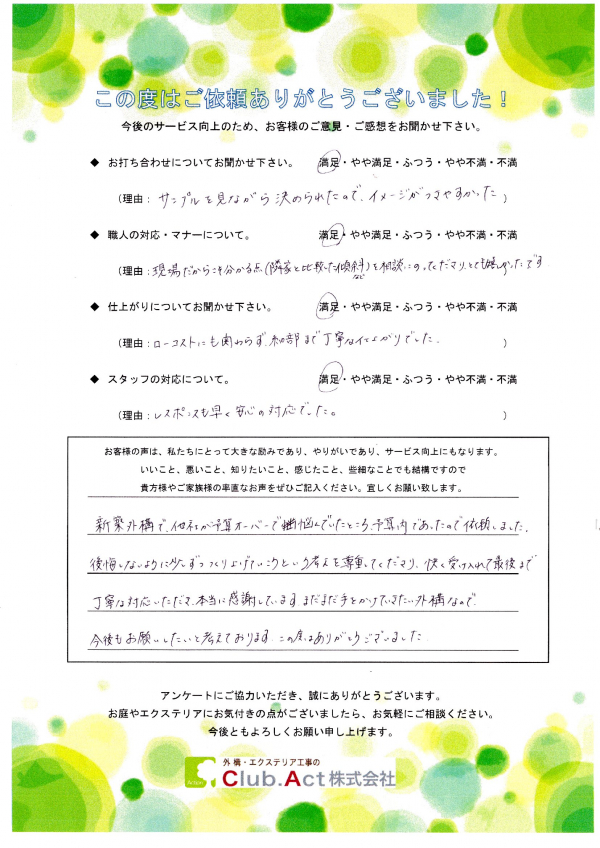 この度はご依頼ありがとうございました！
今後のサービス向上のため、お客様のご意見・ご感想をお聞かせ下さい。
◆ お打ち合わせについてお聞かせ下さい。 満足・やや満足・ふつう・やや不満・不満
（理由：サンプルを見ながら決められたので、イメージがつきやすかった）
◆ 職人の対応・マナーについて。 満足・やや満足・ふつう・やや不満・不満
（理由：現場だからこそ分かる点(隣家と比較した傾斜など)を相談にのってくださり、とても嬉しかったです
◆ 仕上がりについてお聞かせ下さい。 満足・やや満足・ふつう・やや不満・不満
（理由：ローコストにも関わらず、細部まで丁寧な仕上がりでした。）
◆ スタッフの対応について。 満足・やや満足・ふつう・やや不満・不満
（理由：レスポンスも早く安心の対応でした。）
お客様の声は、私たちにとって大きな励みであり、やりがいであり、サービス向上にもなります。
いいこと、悪いこと、知りたいこと、感じたこと、些細なことでも結構ですので
貴方様やご家族様の率直なお声をぜひご記入ください。宜しくお願い致します。
新築外構で、他社が予算オーバーで悩んでいたところ、予算内であったので依頼しました。
後悔しないように少しずつつくり上げていこうという考えを尊重してくださり、快く受け入れて最後まで
丁寧な対応いただき、本当に感謝しています。まだまだ手をかけていきたい外構なので、
今後もお願いしたいと考えております。この度はありがとうございました。
アンケートにご協力いただき、誠にありがとうございます。
お庭やエクステリアにお気付きの点がございましたら、お気軽にご相談ください。
今後ともよろしくお願い申し上げます。
Action
外構・エクステリア工事の
Club.Act株式会社